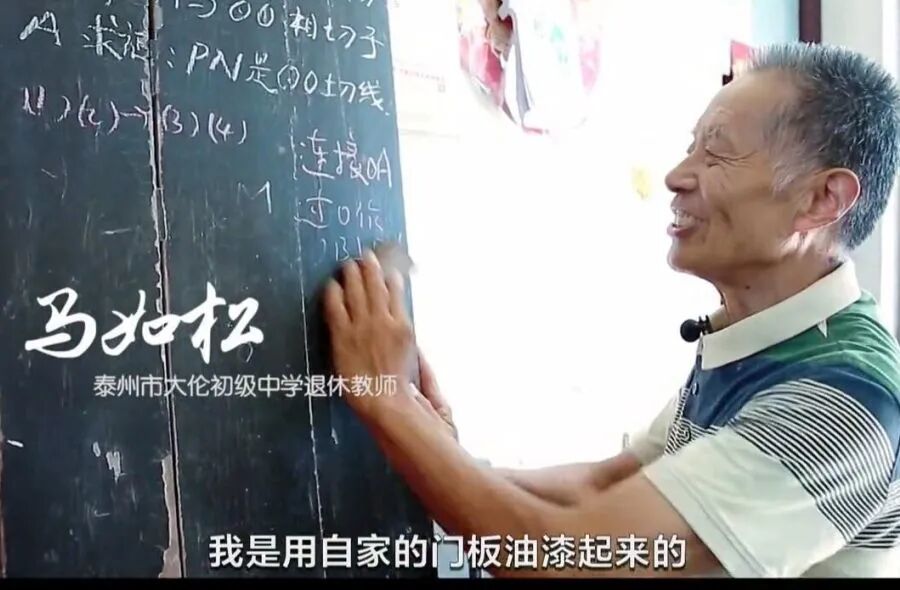 与⊙O相切于
A 求证:PN是⊙O切线
(2)→(3)(4)
连接OA
M 过O作
马如松
泰州市大伦初级中学退休教师
我是用自家的门板油漆起来的